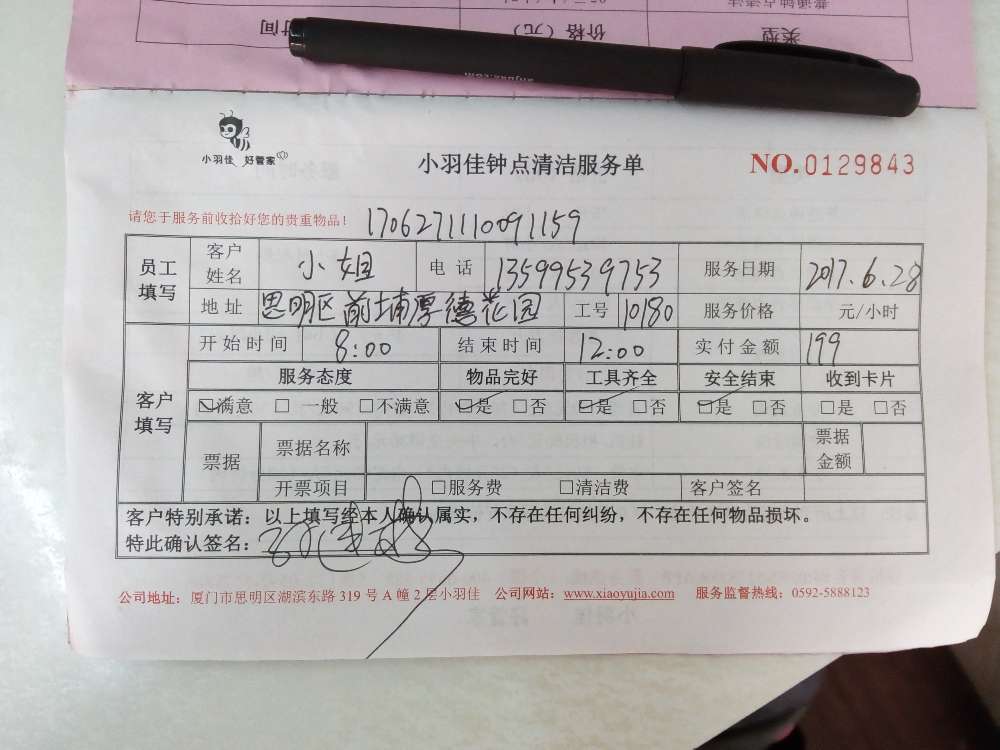 类型 价格（元） 时间
小羽佳 好管家
小羽佳钟点清洁服务单
NO.0129843
请您于服务前收拾好您的贵重物品！ 1706271110091159
员工填写 客户姓名 小姐 电话 13599539753 服务日期 2017.6.28
地址 思明区前埔厚德花园 工号 10180 服务价格 元/小时
客户填写 开始时间 8:00 结束时间 12:00 实付金额 199
服务态度 物品完好 工具齐全 安全结束 收到卡片
☑满意 □ 一般 □不满意 ☑是 □否 ☑是 □否 ☑是 □否 □是 □否
票据 票据名称 票据金额
开票项目 □服务费 □清洁费 客户签名
客户特别承诺：以上填写经本人确认属实，不存在任何纠纷，不存在任何物品损坏。
特此确认签名：
公司地址：厦门市思明区湖滨东路 319 号 A 幢 2 层小羽佳 公司网站：www.xiaoyujia.com 服务监督热线：0592-5888123